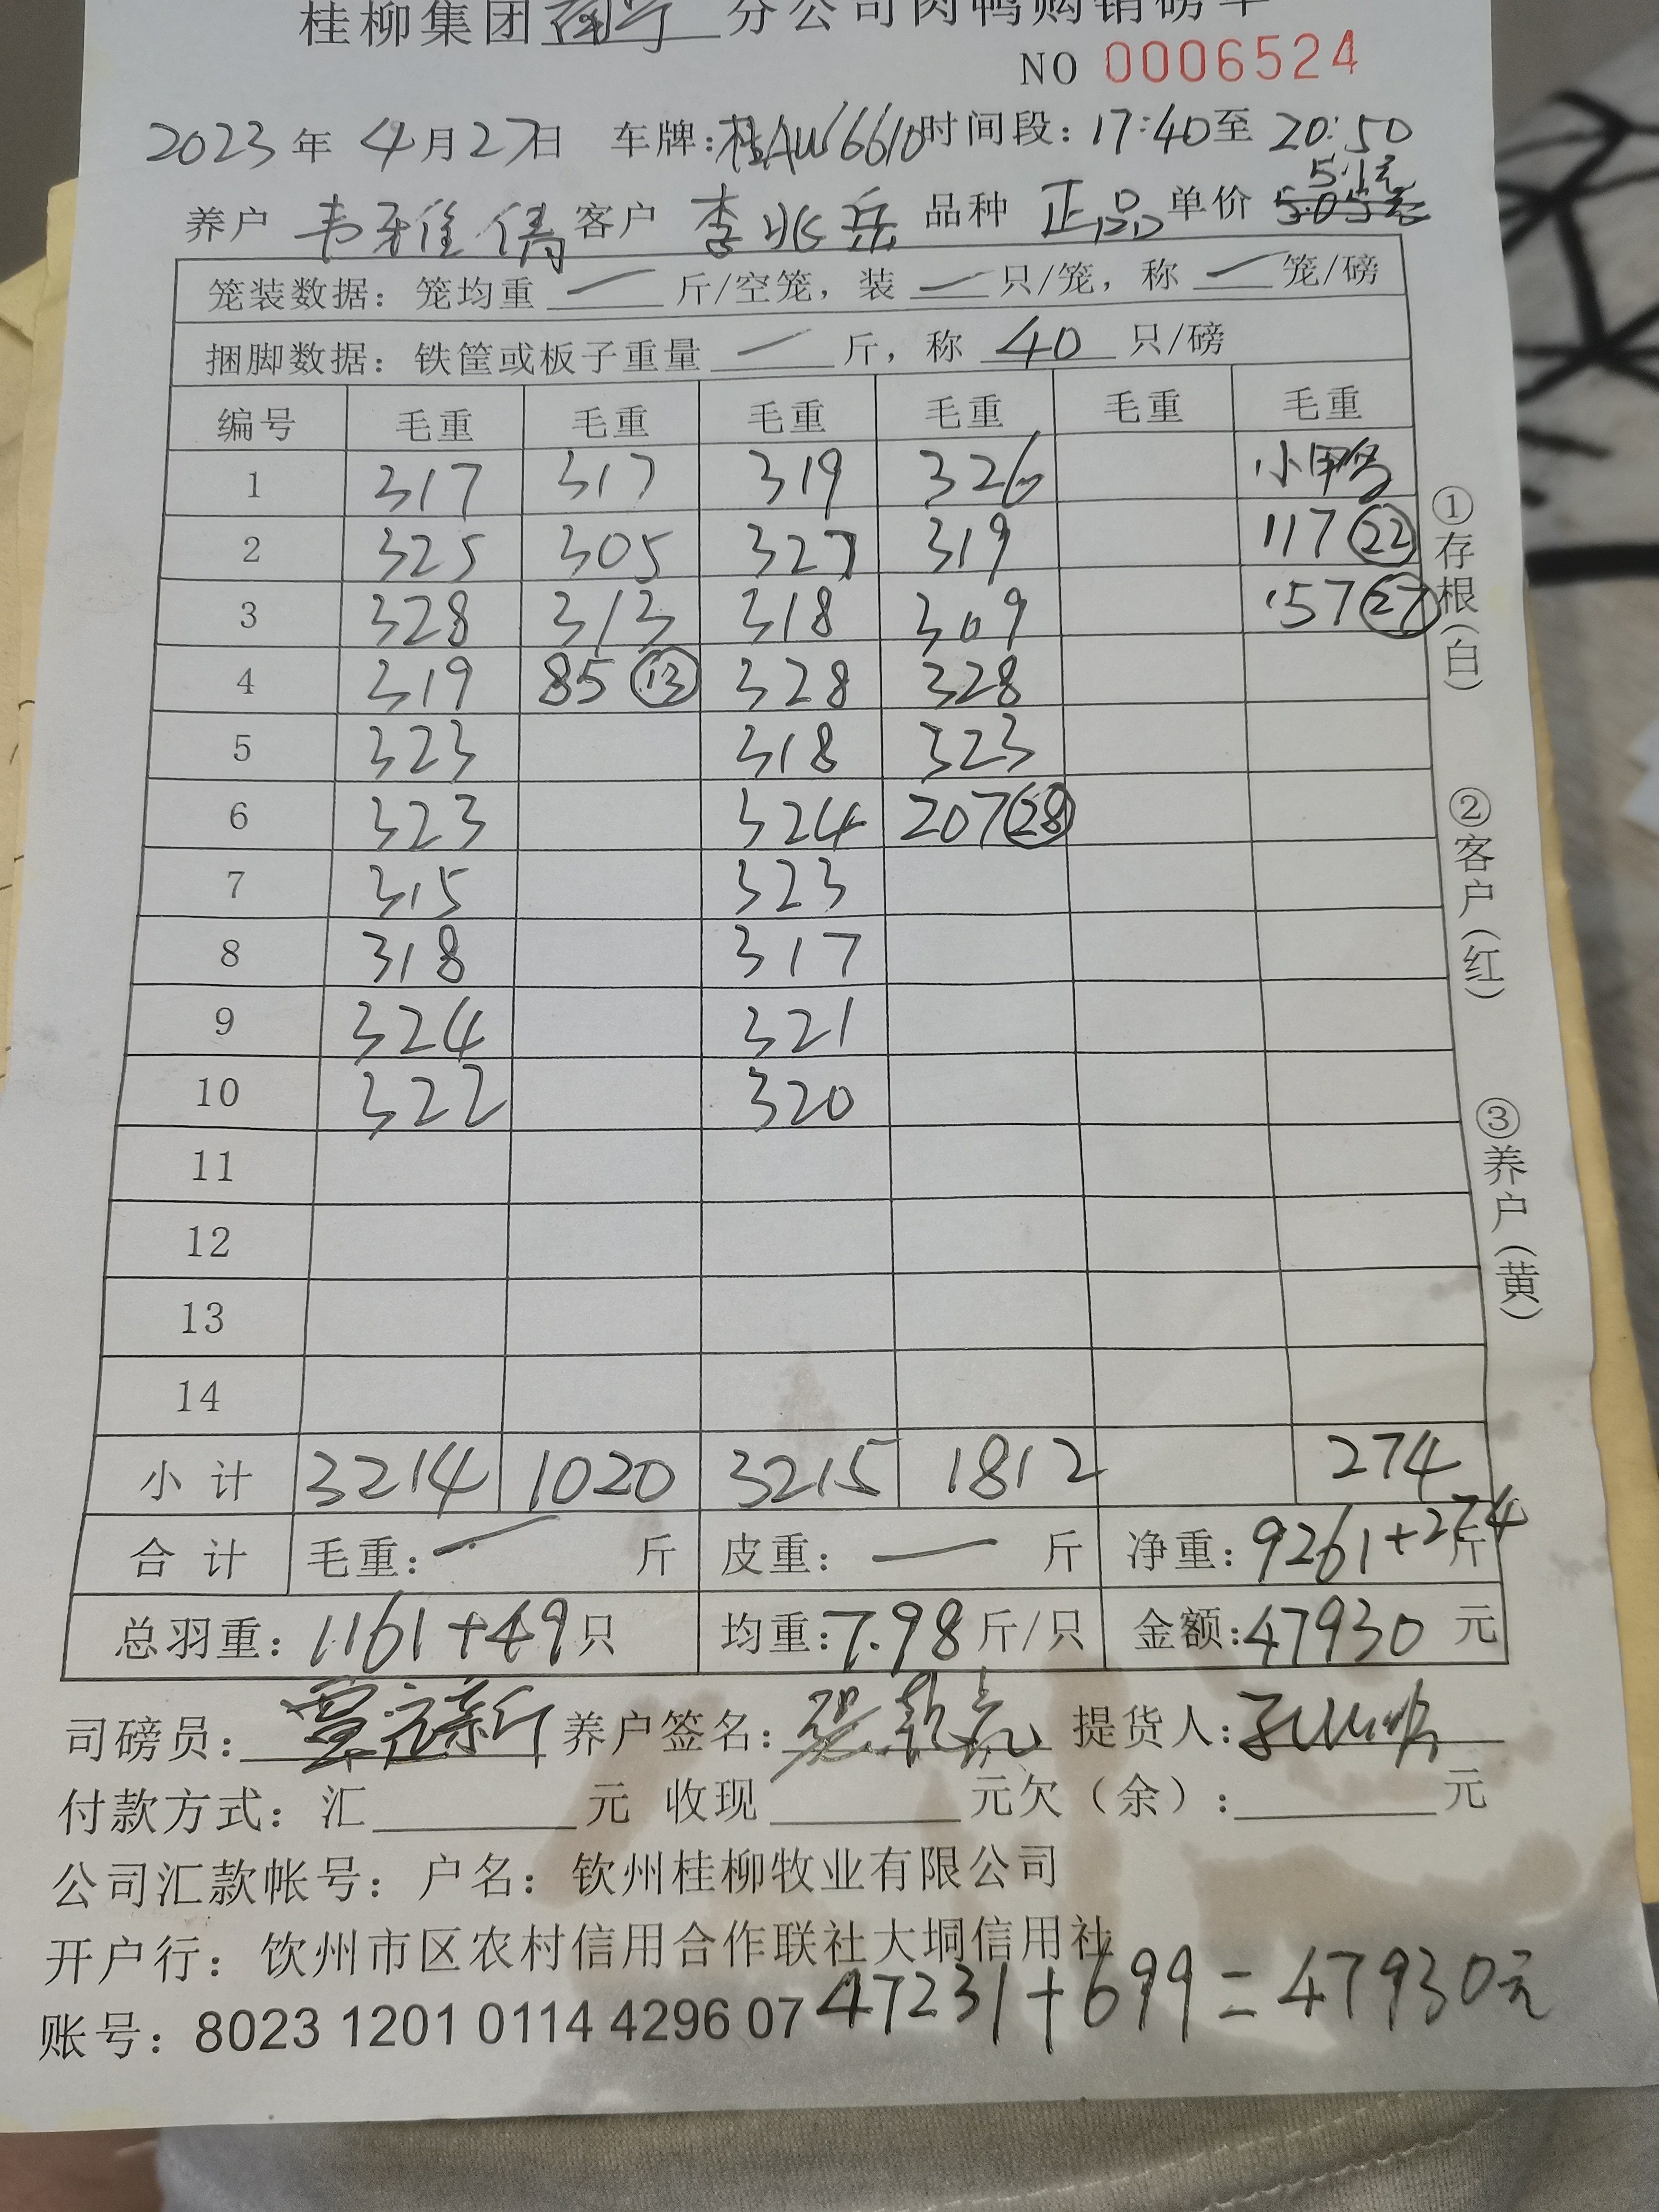 桂柳集团南宁分公司肉鸭购销磅单
NO 0006524
2023年4月27日 车牌:桂AW6610 时间段:17:40至20:50
5.1元
养户 韦雅倩 客户 李兆岳 品种 正品 单价 5.05元
笼装数据:笼均重 一 斤/空笼,装 一 只/笼,称 一 笼/磅
捆脚数据:铁筐或板子重量 一 斤,称 40 只/磅
编号 毛重 毛重 毛重 毛重 毛重 毛重
1 317 317 319 326 小鸭
2 325 305 327 319 117 22
3 328 313 318 309 157 27
4 319 85 13 328 328
5 323 318 323
6 323 324 207 28
7 315 323
8 318 317
9 324 321
10 322 320
11
12
13
14
小计 3214 1020 3215 1812 274
合计 毛重:一 斤 皮重:一 斤 净重:9261+274斤
总羽重:1161+49只 均重:7.98斤/只 金额:47930元
司磅员: 养户签名: 提货人:
付款方式:汇 元 收现 元欠(余): 元
公司汇款帐号:户名:钦州桂柳牧业有限公司
开户行:钦州市区农村信用合作联社大垌信用社
账号:8023 1201 0114 4296 07
47231+699=47930元
①存根(白)
②客户(红)
③养户(黄)